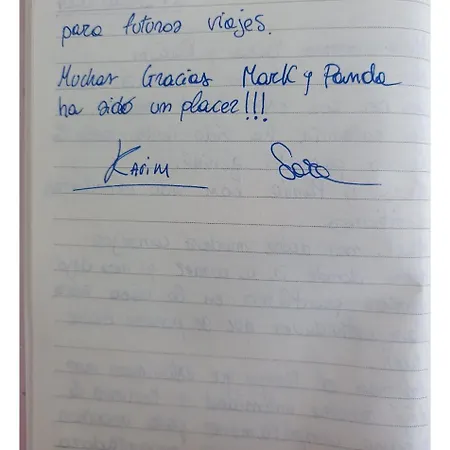 para futuros viajes.
Muchas Gracias Mark y Panda
ha sido un placer!!!
Karim Sara